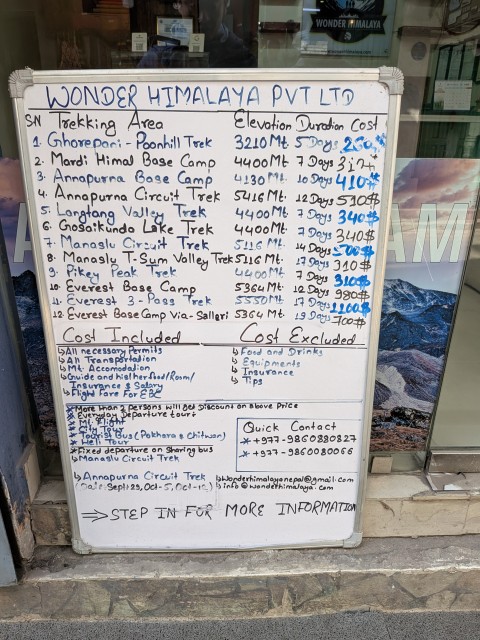 WONDER HIMALAYA
WONDER HIMALAYA PVT LTD
SN Trekking Area Elevation Duration Cost
1. Ghorepani - Poonhill Trek 3210 Mt. 5 Days 260$
2. Mardi Himal Base Camp 4400 Mt. 7 Days
3. Annapurna Base Camp 4130 Mt. 10 Days 410$
4. Annapurna Circuit Trek 5416 Mt. 12 Days 510$
5. Langtang Valley Trek 4400 Mt. 7 Days 340$
6. Gosaikunda Lake Trek 4400 Mt. 7 Days 340$
7. Manaslu Circuit Trek 5116 Mt. 14 Days 500$
8. Manaslu T-Sum Valley Trek 5116 Mt. 17 Days 310$
9. Pikey Peak Trek 4400 Mt. 7 Days 310$
10. Everest Base Camp 5364 Mt. 12 Days 980$
11. Everest 3-Pass Trek 5550 Mt. 17 Days 1100$
12. Everest Base Camp Via-Salleri 5364 Mt. 19 Days 700$
Cost Included
↳ All necessary Permits
↳ All Transportation
↳ Mt. Accomodation
↳ Guide and his/her food/Room/
Insurance & Salary
↳ Flight Fare For EBC
Cost Excluded
↳ Food and Drinks
↳ Equipments
↳ Insurance
↳ Tips
* More than 2 persons will get Discount on above Price
* Everyday Departure tour:
* Mt. Flight
* City Tour
* Tourist Bus (Pokhara & Chitwan)
* Heli Tour
* Fixed departure on Sharing bus
↳ Manaslu Circuit Trek
↳ Annapurna Circuit Trek
Quick Contact
* +977-9860880827
* +977-9860080066
↳ wonderhimalayanepal@gmail.com
↳ info@wonderhimalaya.com
⇒ STEP IN FOR MORE INFORMATION
AM